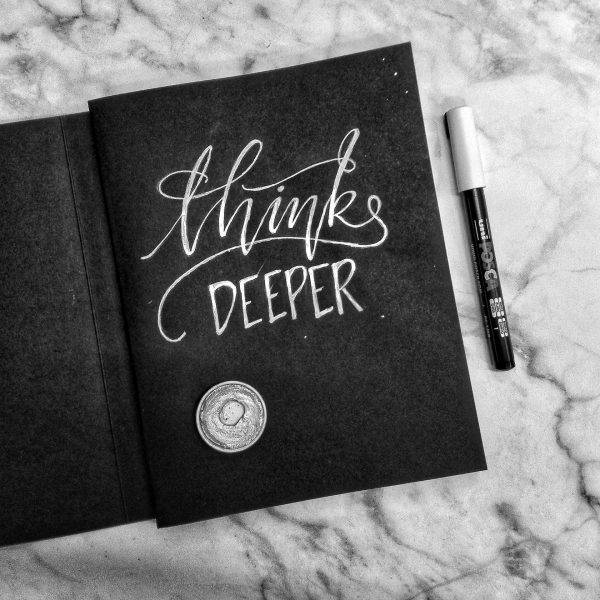 think
DEEPER
uni
POSCA